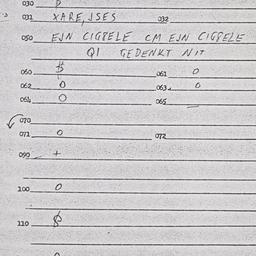 030 P
031 XARE, ISES 032
050 EJN CIGPELE CM EJN CIGPELE
QI GEDENKT NIT
060 061 O
062 O 063 O
064 O 065 —
070
071 O 072
099 +
100 O
110